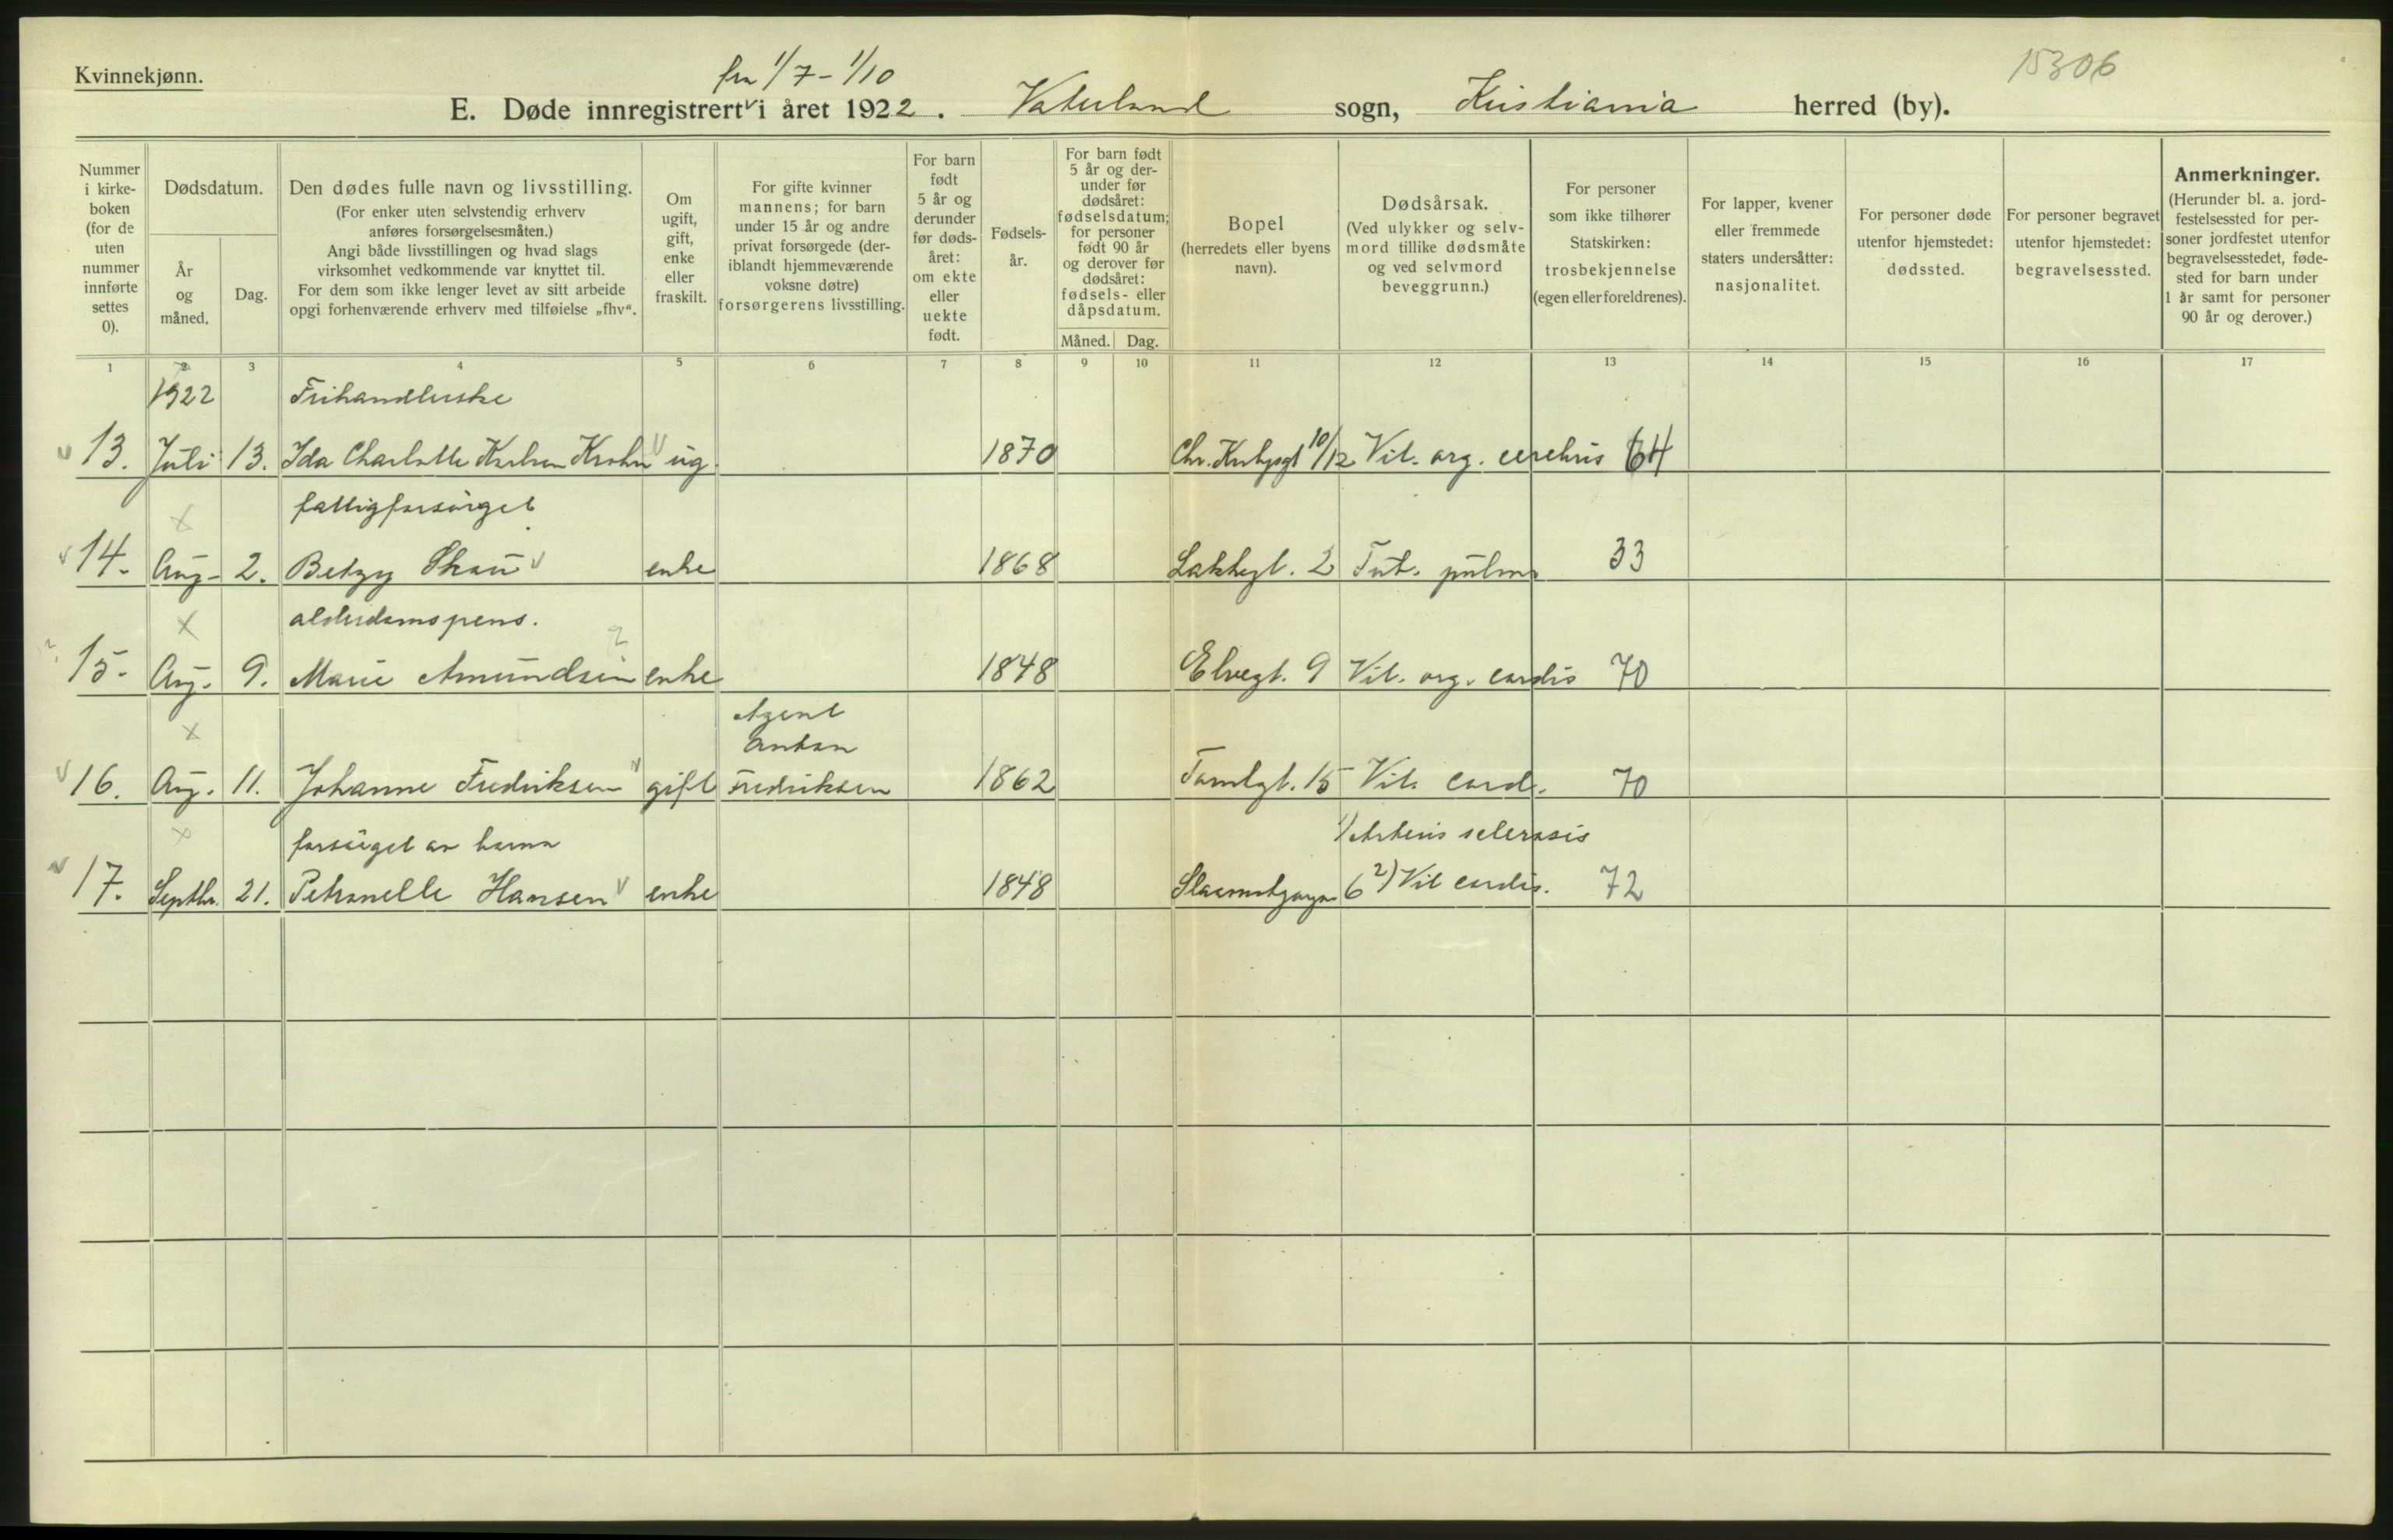 Kvinnekjønn.
fra 1/7 - 1/10
15306
E. Døde innregistrert i året 1922. Vaterland sogn, Kristiania herred (by).
Nummer i kirkeboken (for de uten nummer innførte settes 0).
Dødsdatum.
År og måned.
Dag.
Den dødes fulle navn og livsstilling.
(For enker uten selvstendig erhverv anføres forsørgelsesmåten.)
Angi både livsstillingen og hvad slags virksomhet vedkommende var knyttet til.
For dem som ikke lenger levet av sitt arbeide opgi forhenværende erhverv med tilføielse „fhv“.
Om ugift, gift, enke eller fraskilt.
For gifte kvinner mannens; for barn under 15 år og andre privat forsørgede (deriblandt hjemmeværende voksne døtre) forsørgerens livsstilling.
For barn født 5 år og derunder før dødsåret: om ekte eller uekte født.
Fødselsår.
For barn født 5 år og derunder før dødsåret: fødselsdatum; for personer født 90 år og derover før dødsåret: fødsels- eller dåpsdatum.
Måned.
Dag.
Bopel
(herredets eller byens navn).
Dødsårsak.
(Ved ulykker og selvmord tillike dødsmåte og ved selvmord beveggrunn.)
For personer som ikke tilhører Statskirken: trosbekjennelse (egen eller foreldrenes).
For lapper, kvener eller fremmede staters undersåtter: nasjonalitet.
For personer døde utenfor hjemstedet: dødssted.
For personer begravet utenfor hjemstedet: begravelsessted.
Anmerkninger.
(Herunder bl. a. jordfestelsessted for personer jordfestet utenfor begravelsesstedet, fødested for barn under 1 år samt for personer 90 år og derover.)
1 2 3 4 5 6 7 8 9 10 11 12 13 14 15 16 17
1922 Frihandlerske
13. Juli 13. Ida Charlotte Karlsen Krohn ug. 1870 Chr. Krohgsgt 10/12 Vit. org. cerebris 64
fattigforsørget
14. Aug. 2. Betzy Skau enke 1868 Lakkegt. 2 Tub. pulm 33
alderdomspens.
15. Aug. 9. Marie Amundsen enke 1848 Elvegt. 9 Vit. org. cordis 70
Agent
Anton
16. Aug. 11. Johanne Fredriksen gift Fredriksen 1862 Tomtegt. 15 Vit. cord. 70
forsørget av barna 1) Arteris sclerosis
17. Septbr. 21. Petronelle Hansen enke 1848 6 2) Vit cordis. 72